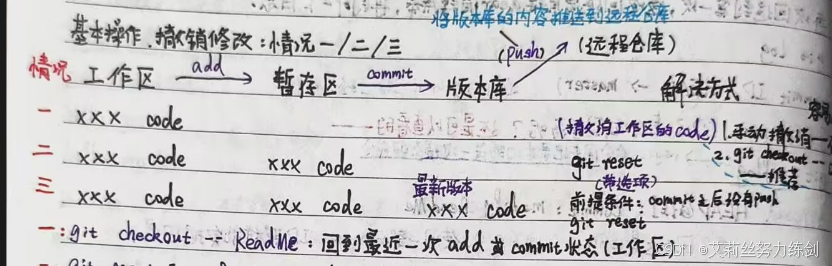 将版本库的内容推送到远程仓库
基本操作、撤销修改:情况一/二/三 (push) (远程仓库)
情况 工作区 add 暂存区 commit 版本库 解决方式
一 xxx code (撤销工作区的code) 1.手动撤销
二 xxx code xxx code git reset 2. git checkout --
(带选项) 推荐
三 xxx code xxx code 最新版本 xxx code 前提条件:commit之后没有push
git reset
一:git checkout -- ReadMe:回到最近一次add或commit状态(工作区)
CSDN @艾莉丝努力练剑